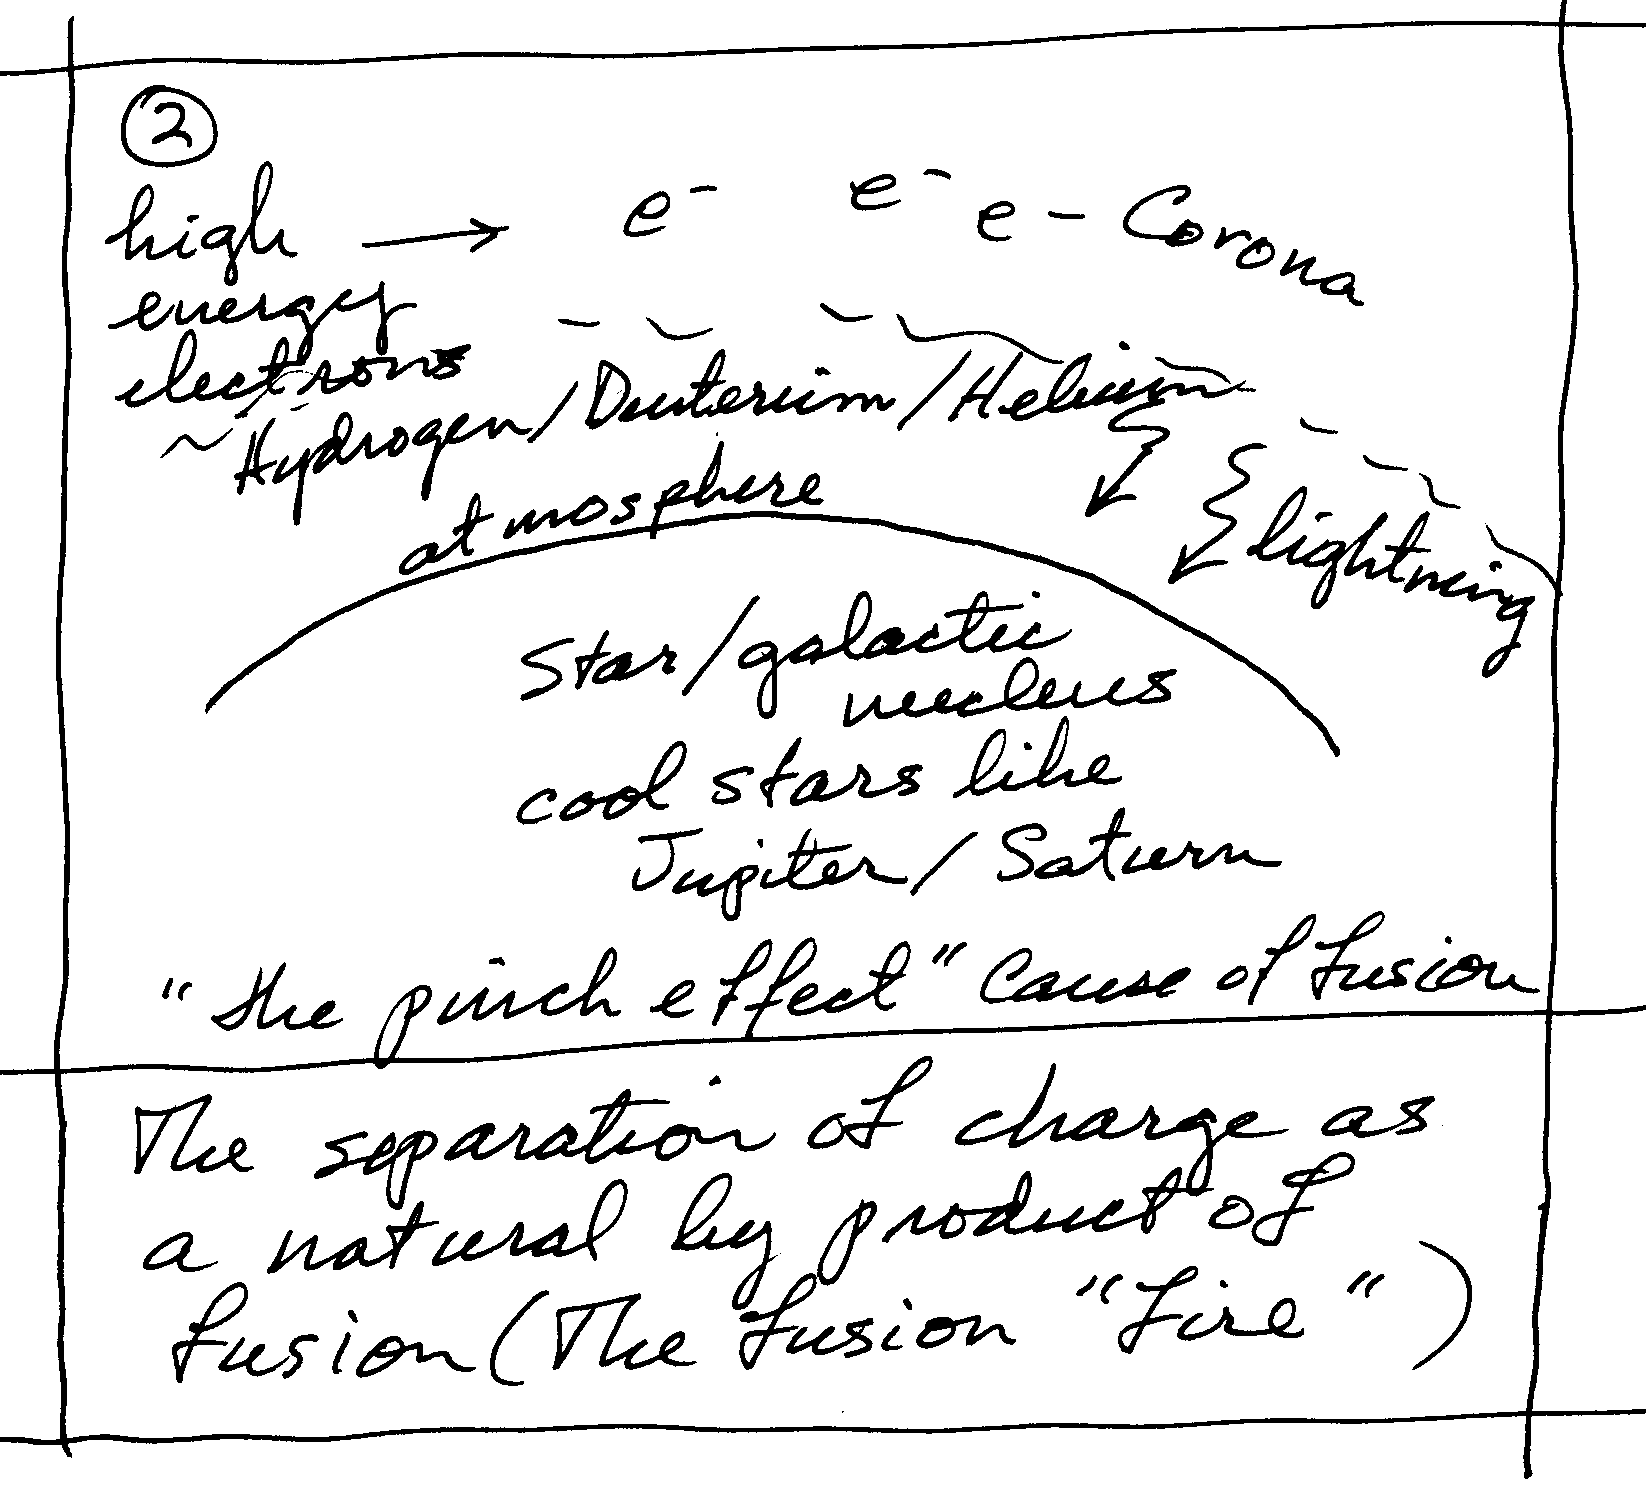 2
high → e⁻ e⁻ e - Corona
energy
electrons
~Hydrogen/Deuterium/Helium
atmosphere
lightning
Star/galactic
nucleus
cool stars like
Jupiter/Saturn
"the pinch effect" cause of fusion
The separation of charge as
a natural by product of
fusion (The fusion "fire")